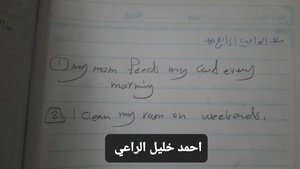 ① my mom feeds my and every
morning
② I clean my room on weekends.
احمد خليل الراعي